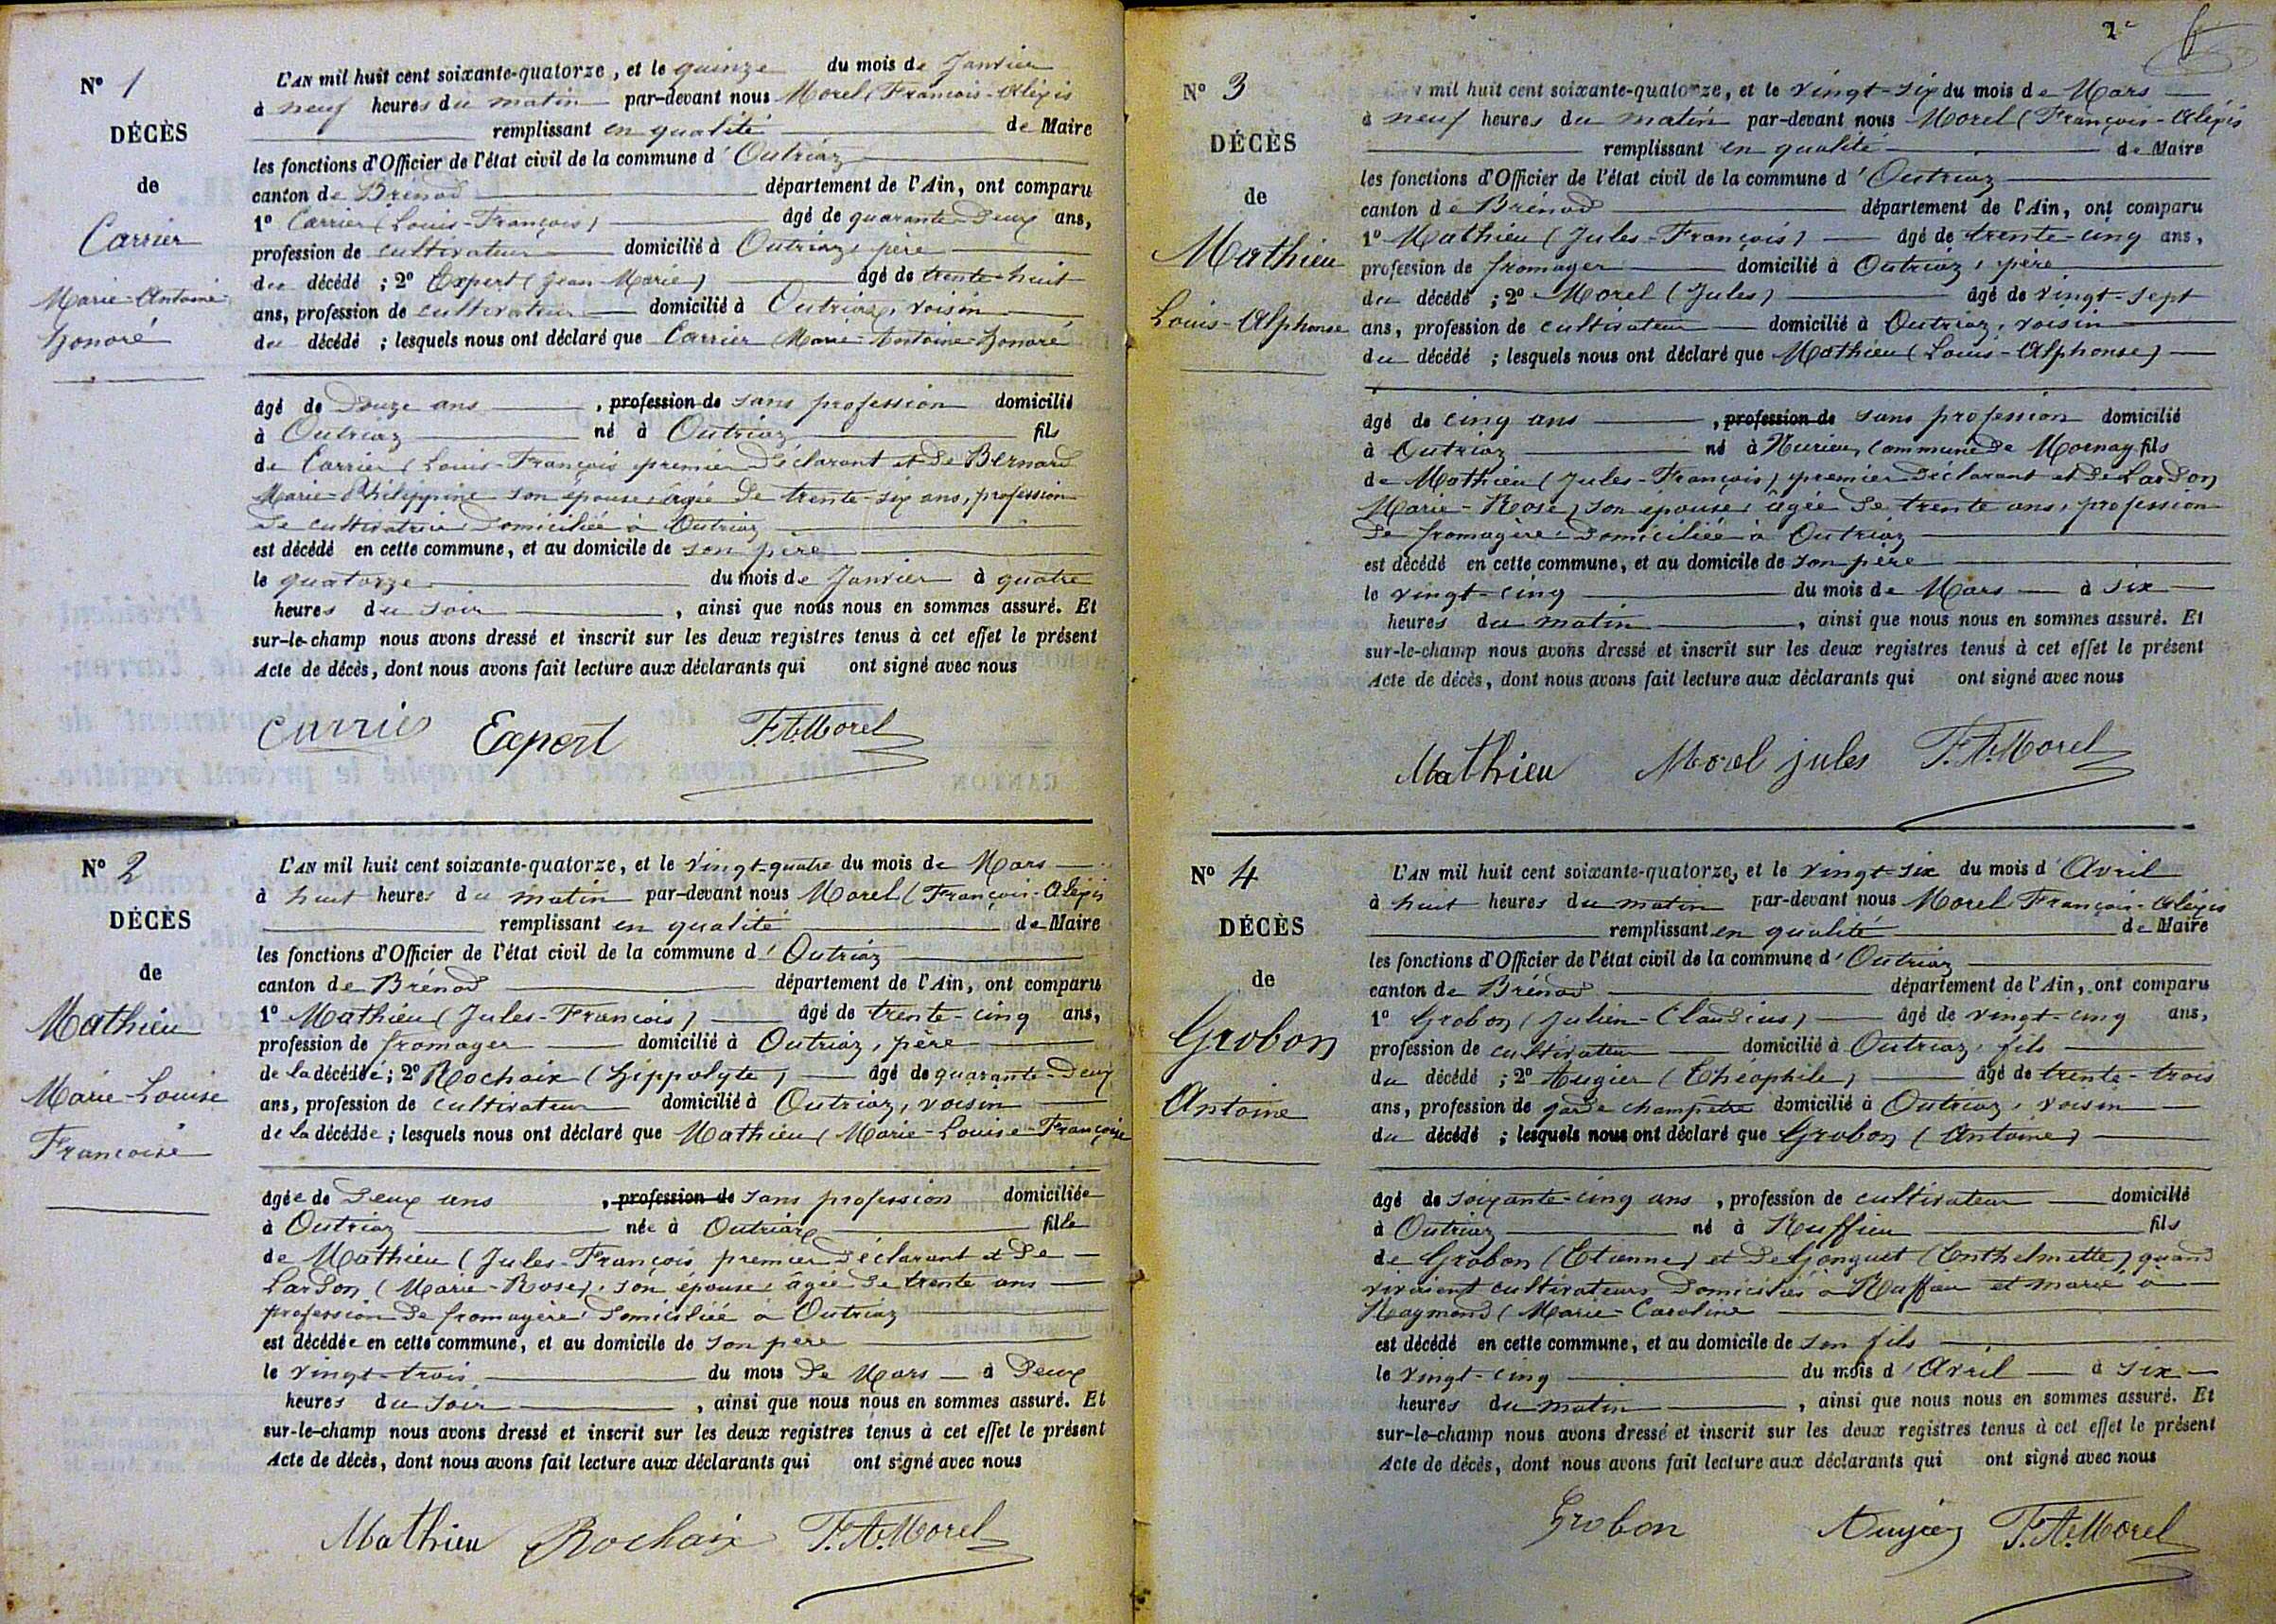 N° 1
DÉCÈS
de
Carrier
Marie-Antoine-
Honoré
L'AN mil huit cent soixante-quatorze, et le quinze du mois de Janvier
à neuf heures du matin par-devant nous Morel (François-Alexis
remplissant en qualité de Maire
les fonctions d'Officier de l'état civil de la commune d'Outriaz
canton de Brénod département de l'Ain, ont comparu
1° Carrier (Louis-François) âgé de quarante-deux ans,
profession de cultivateur domicilié à Outriaz, père
du décédé ; 2° Expert (Jean-Marie) âgé de trente-huit
ans, profession de cultivateur domicilié à Outriaz, voisin
du décédé ; lesquels nous ont déclaré que Carrier (Marie-Antoine-Honoré
âgé de Douze ans , profession de sans profession domicilié
à Outriaz né à Outriaz fils
de Carrier (Louis-François premier Déclarant et De Bernard
Marie-Philippine son épouse, âgée De trente-six ans, profession
De cultivatrice Domiciliée à Outriaz
est décédé en cette commune, et au domicile de son père
le quatorze du mois de Janvier à quatre
heures du soir , ainsi que nous nous en sommes assuré. Et
sur-le-champ nous avons dressé et inscrit sur les deux registres tenus à cet effet le présent
Acte de décès, dont nous avons fait lecture aux déclarants qui ont signé avec nous
Expert F.A. Morel
N° 2
DÉCÈS
de
Mathieu
Marie-Louise
Françoise
L'AN mil huit cent soixante-quatorze, et le vingt-quatre du mois de Mars
à huit heures du matin par-devant nous Morel (François-Alexis
remplissant en qualité de Maire
les fonctions d'Officier de l'état civil de la commune d'Outriaz
canton de Brénod département de l'Ain, ont comparu
1° Mathieu (Jules-François) âgé de trente-cinq ans,
profession de fromager domicilié à Outriaz, père
de la décédée ; 2° Rochaix (Hippolyte) âgé de quarante-Deux
ans, profession de cultivateur domicilié à Outriaz, voisin
de la décédée ; lesquels nous ont déclaré que Mathieu (Marie-Louise-Françoise
âgée de Deux ans , profession de sans profession domiciliée
à Outriaz née à Outriaz fille
de Mathieu (Jules-François premier Déclarant et De
Lardon (Marie-Rose), son épouse, âgée De trente ans
profession De fromagère Domiciliée à Outriaz
est décédée en cette commune, et au domicile de son père
le vingt-trois du mois De Mars à Deux
heures du soir , ainsi que nous nous en sommes assuré. Et
sur-le-champ nous avons dressé et inscrit sur les deux registres tenus à cet effet le présent
Acte de décès, dont nous avons fait lecture aux déclarants qui ont signé avec nous
Mathieu Rochaix F.A. Morel
N° 3
DÉCÈS
de
Mathieu
Louis-Alphonse
mil huit cent soixante-quatorze, et le vingt-six du mois de Mars
à neuf heures du matin par-devant nous Morel (François-Alexis
remplissant en qualité de Maire
les fonctions d'Officier de l'état civil de la commune d'Outriaz
canton de Brénod département de l'Ain, ont comparu
1° Mathieu (Jules-François) âgé de trente-cinq ans,
profession de fromager domicilié à Outriaz, père
du décédé ; 2° Morel (Jules) âgé de vingt-sept
ans, profession de cultivateur domicilié à Outriaz, voisin
du décédé ; lesquels nous ont déclaré que Mathieu (Louis-Alphonse)
âgé de cinq ans , profession de sans profession domicilié
à Outriaz né à Nurieux commune De Mornay fils
de Mathieu (Jules-François) premier Déclarant et De Lardon
Marie-Rose) son épouse, âgée De trente ans, profession
De fromagère Domiciliée à Outriaz
est décédé en cette commune, et au domicile de son père
le vingt-cinq du mois de Mars à six
heures du matin , ainsi que nous nous en sommes assuré. Et
sur-le-champ nous avons dressé et inscrit sur les deux registres tenus à cet effet le présent
Acte de décès, dont nous avons fait lecture aux déclarants qui ont signé avec nous
Mathieu Morel jules F.A. Morel
N° 4
DÉCÈS
de
Grobon
Antoine
L'AN mil huit cent soixante-quatorze, et le vingt-six du mois d'Avril
à huit heures du matin par-devant nous Morel François-Alexis
remplissant en qualité de Maire
les fonctions d'Officier de l'état civil de la commune d'Outriaz
canton de Brénod département de l'Ain, ont comparu
1° Grobon (Julien-Claudius) âgé de vingt-cinq ans,
profession de cultivateur domicilié à Outriaz, fils
du décédé ; 2° Augier (Théophile) âgé de trente-trois
ans, profession de garde champêtre domicilié à Outriaz, voisin
du décédé ; lesquels nous ont déclaré que Grobon (Antoine)
âgé de soixante-cinq ans , profession de cultivateur domicilié
à Outriaz né à Ruffieu fils
de Grobon (Etienne) et De (Enthelmette) quand
vivaient cultivateurs Domiciliés à Ruffieu et marié à
Raymond (Marie-Caroline
est décédé en cette commune, et au domicile de son fils
le vingt-cinq du mois d'Avril à six
heures du matin , ainsi que nous nous en sommes assuré. Et
sur-le-champ nous avons dressé et inscrit sur les deux registres tenus à cet effet le présent
Acte de décès, dont nous avons fait lecture aux déclarants qui ont signé avec nous
Grobon F.A. Morel